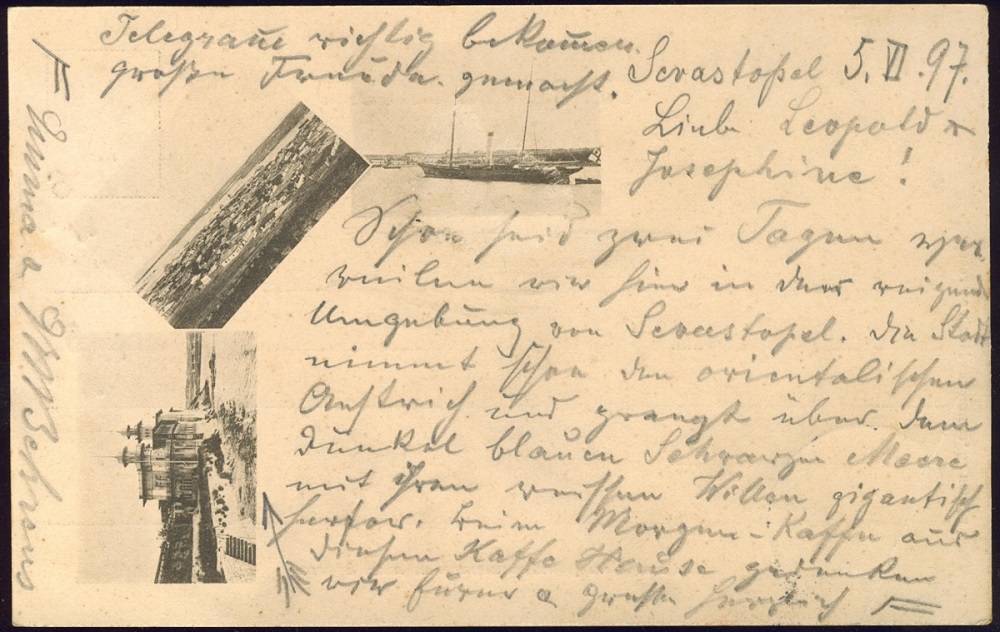 Telegram richtig bekommen.
große Freude gemacht.
Sevastopel 5. VI. 97.
Liebe Leopold &
Josephine!
Schon seid zwei Tagen ver-
weilen wir hier in der reizend
Umgebung von Sevastopel. Die Stadt
nimmt schon den orientalischen
Anstrich und prangt über dem
dunkel blauen Schwarzen Meere
mit ihren weissen Willen gigantisch
herfor. Beim Morgen-Kaffee aus
diesen Kaffe Hause gedenken
wir Eurer & grüße herzlich
Emma &